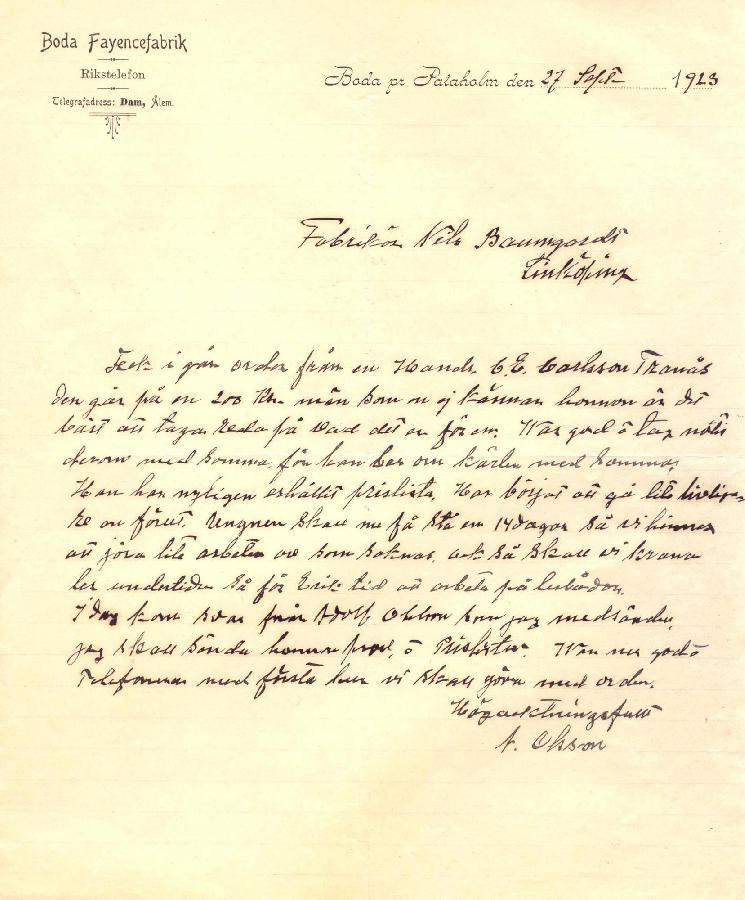 Boda Fayencefabrik
Rikstelefon
Telegrafadress: Dam, Ålem.
Boda pr Pataholm den 27 Sept 1913
Fabrikör Nils Baumgardt
Linköping
Feck i går order från en Handl. C.E. Carlsson Tranås
den går på en 200 Kr. män som vi ej känna honnon är det
bäst att taga reda på vad det er för en. War god ö tag nötis
derom med somma, för han ber om kärlen med somma.
Han har nyligen erhållit prislista. Har börjat att gå lite livliga-
re en förut. Ungnen skall nu få stå en 14 dagar så vi hinner
att jöra lite arbeten av som saknas, ock så skall vi
under tiden så får Erik tid att arbeta på
I dag kom svar från Adolf Ohlson som jag medsänder,
jag skall sända honnom prov, ö Prislistor. War nu god ö
Telefonnera med första hur vi skall göra med order.
Högacktningsfullt
A. Olsson